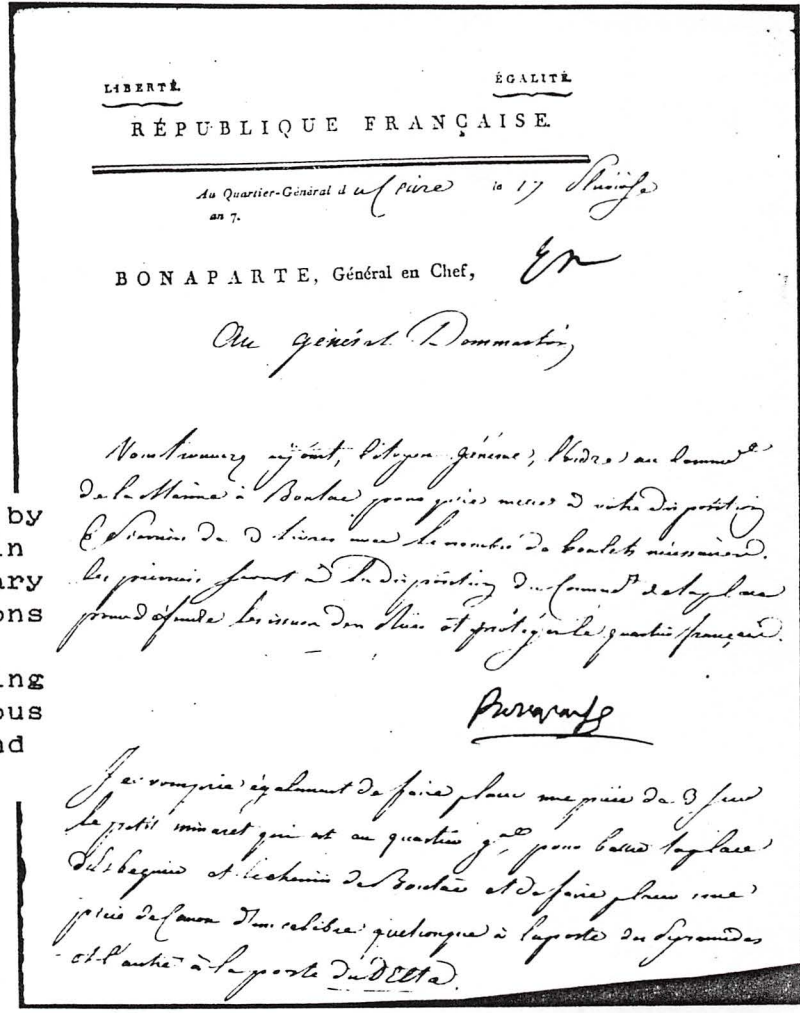 LIBERTÉ. ÉGALITÉ.
RÉPUBLIQUE FRANÇAISE.
Au Quartier-Général du Caire le 17 Pluviôse
an 7.
BONAPARTE, Général en Chef,
Au général Dommartin,
Vous trouverez cyjoint, Citoyen général, l'ordre au Comm.
de la Marine à Boulac pour mettre à votre disposition
6 Pierriers de livres avec le nombre de boulets nécessaires.
les pierriers seront à la disposition du Command.t de la place
pour défendre les issues des et protéger le quartier français.
Bonaparte
Je vous prie également de faire placer une pièce de 3 sur
le petit minaret qui est au quartier g.al pour battre la place
et le chemin de Boulac et de faire placer une
pièce de Canon d'un calibre quelconque à la porte des Pyramides
et l'autre à la porte du DElta.
by
ary
ons
ing
ous
nd